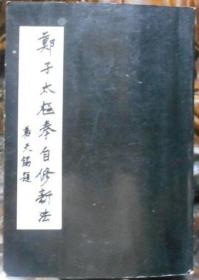 鄭子太極拳自修新法
馬天錫題